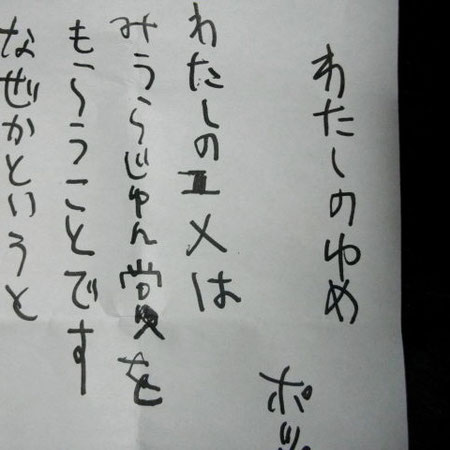 わたしのゆめ
ポッ
わたしのユメは
みうらじゅん賞を
もらうことです
なぜかというと